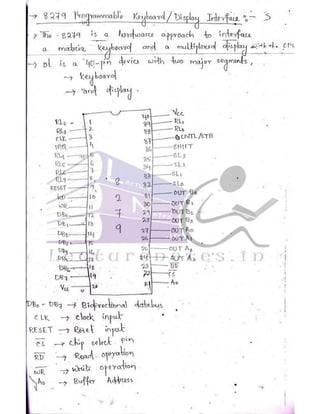 → 8279 Programmable Keyboard/Display Interface :- 3
> The 8279 is a hardware approach to interface
a matrix keyboard and a multiplexed display with the CPU
→ It is a 40-pin device with two major segments,
→ keyboard
→ and display.
RL2 1 40 Vcc
RL3 2 39 RL1
CLK 3 38 RL0
IRQ 4 37 CNTL/STB
RL4 5 36 SHIFT
RL5 6 35 SL3
RL6 7 34 SL2
RL7 8 33 SL1
RESET 9 32 SL0
RD 10 31 OUT B0
WR 11 30 OUT B1
DB0 12 29 OUT B2
DB1 13 28 OUT B3
DB2 14 27 OUT A0
DB3 15 26 OUT A1
DB4 16 25 OUT A2
DB5 17 24 OUT A3
DB6 18 23 BD
DB7 19 22 CS
Vss 20 21 A0
8
2
7
9
LectureNotes.in
DB0 - DB7 → Bidirectional databus
CLK → clock input
RESET → Reset input
CS → chip select pin
RD → Read operation
WR → write operation
A0 → Buffer Address